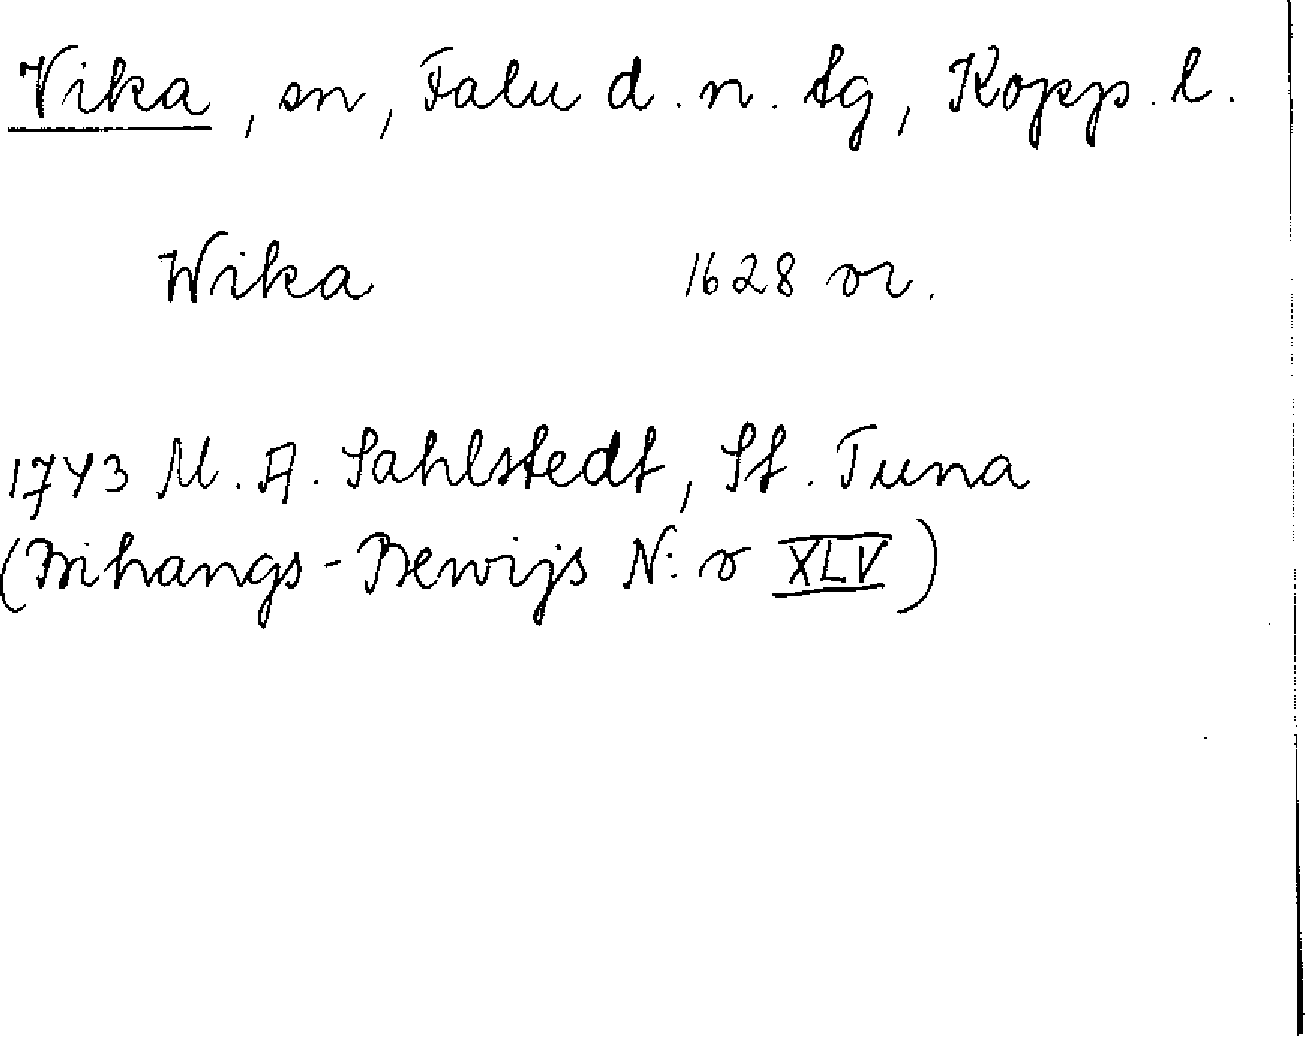 Vika, sn, Falu d. n. tg, Kopp. l.
Wika 1628 or.
1743 M. A. Sahlstedt, St. Tuna
(Bihangs-Bewijs N:o XLV)